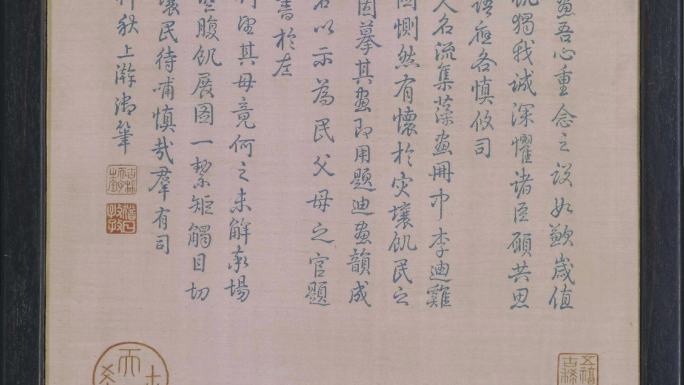 盡吾心重念之設如歉歲值
飢獨我誠深懼諸臣願共思
語應各慎攸司
人名流集藻畫冊中李迪雞
圖惻然有懷於灾壤飢民之
因摹其畫即用題迪畫韻成
名以示為民父母之官題
書於左
其母竟何之未解索場
腹飢展圖一絜矩觸目切
壤民待哺慎哉羣有司
秋上澣御筆
猶日孜孜